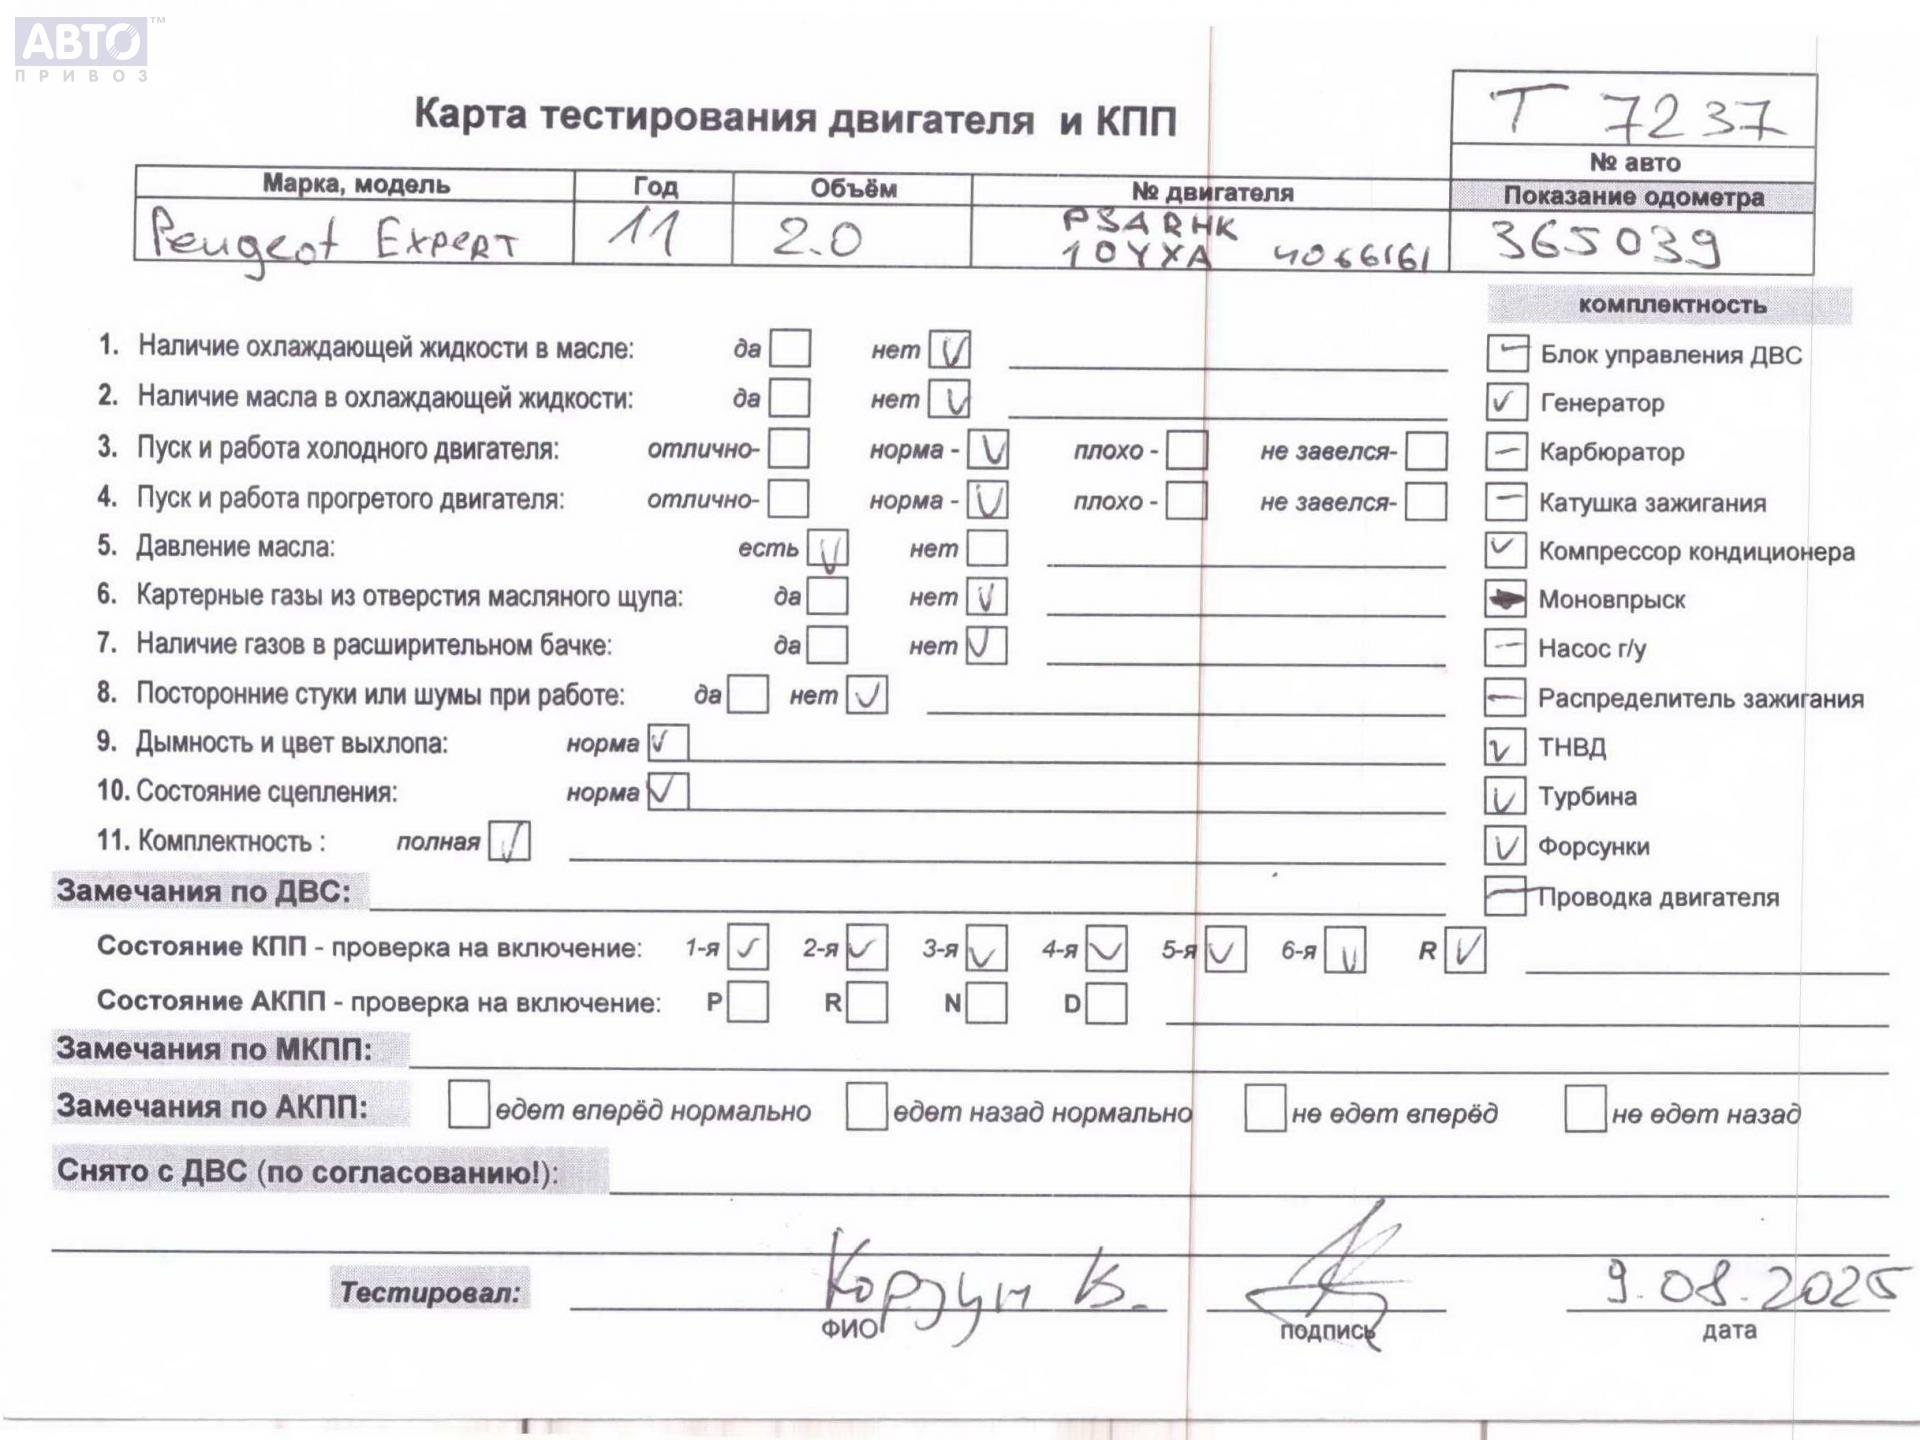 АВТО™
ПРИВОЗ
Карта тестирования двигателя и КПП
Т 7237
№ авто
Марка, модель Год Объём № двигателя Показание одометра
Peugeot Expert 11 2.0 PSARHK 10YXA 4066161 365039
комплектность
1. Наличие охлаждающей жидкости в масле: да нет V
Блок управления ДВС
2. Наличие масла в охлаждающей жидкости: да нет V
Генератор
3. Пуск и работа холодного двигателя: отлично- норма - V плохо - не завелся-
Карбюратор
4. Пуск и работа прогретого двигателя: отлично- норма - V плохо - не завелся-
Катушка зажигания
5. Давление масла: есть V нет
Компрессор кондиционера
6. Картерные газы из отверстия масляного щупа: да нет V
Моновпрыск
7. Наличие газов в расширительном бачке: да нет V
Насос г/у
8. Посторонние стуки или шумы при работе: да нет V
Распределитель зажигания
9. Дымность и цвет выхлопа: норма V
ТНВД
10. Состояние сцепления: норма V
Турбина
11. Комплектность : полная V
Форсунки
Замечания по ДВС:
Проводка двигателя
Состояние КПП - проверка на включение: 1-я V 2-я V 3-я V 4-я V 5-я V 6-я V R V
Состояние АКПП - проверка на включение: P R N D
Замечания по МКПП:
Замечания по АКПП: едет вперёд нормально едет назад нормально не едет вперёд не едет назад
Снято с ДВС (по согласованию!):
Тестировал: Корзун В. 9.08.2025
ФИО подпись дата